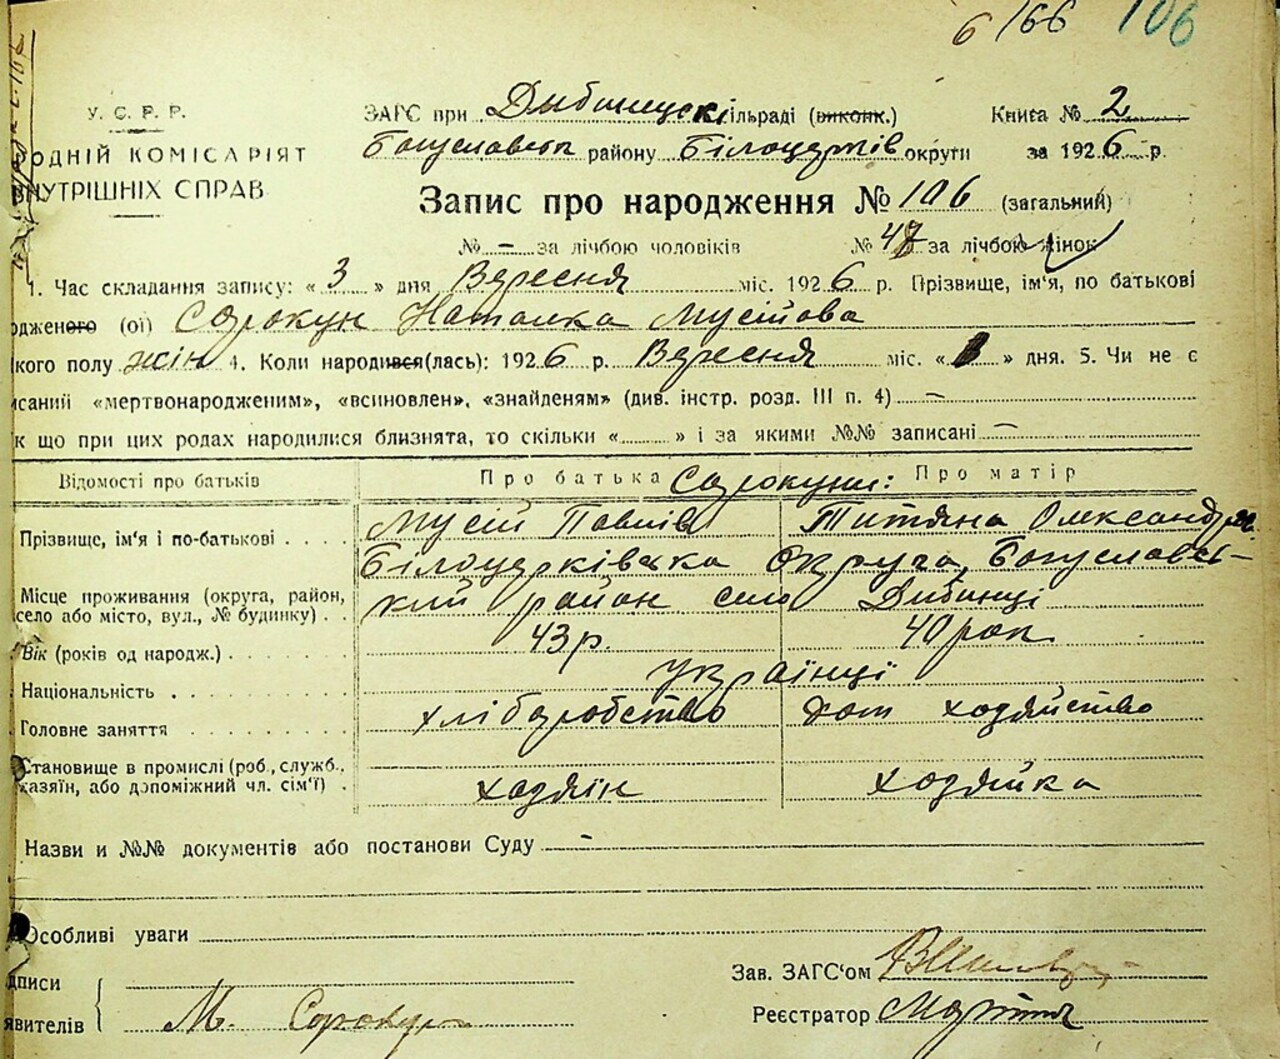 6/66 106
У. С. Р. Р.
ЗАГС при Дибинецскі ільраді (виконк.) Книга № 2
ОДНІЙ КОМІСАРІЯТ
Богуславськ району Білоцерків округи за 1926 р.
ВНУТРІШНІХ СПРАВ
Запис про народження № 106 (загальний)
№ – за лічбою чоловіків № 47 за лічбою жінок
1. Час складання запису: « 3 » дня Вересня міс. 1926 р. Прізвище, ім'я, по батькові
одженого (ої) Сорокун Наталка Мусіївова
кого полу жін 4. Коли народився(лась): 1926 р. Вересня міс. « » дня. 5. Чи не є
исаний «мертвонародженим», «всиновлен», «знайденям» (див. інстр. розд. III п. 4) –
к що при цих родах народилися близнята, то скільки « » і за якими №№ записані –
Відомості про батьків Про батька Сорокуни: Про матір
Прізвище, ім'я і по-батькові Мусій Павлів Титяна Олександр
Білоцерківска Округа, Богуславсь-
Місце проживання (округа, район, село або місто, вул., № будинку) кий район село Дибинці
Вік (років од народж.) 43 р. 40 рок
Національність українці
Головне заняття хліборобство дом ходяйство
Становище в промислі (роб., служб.,
хазяїн, або допоміжний чл. сім'ї) ходяїн ходяйка
Назви и №№ документів або постанови Суду –
Особливі уваги
дписи Зав. ЗАГС'ом
явителів М. Сорокун Реєстратор